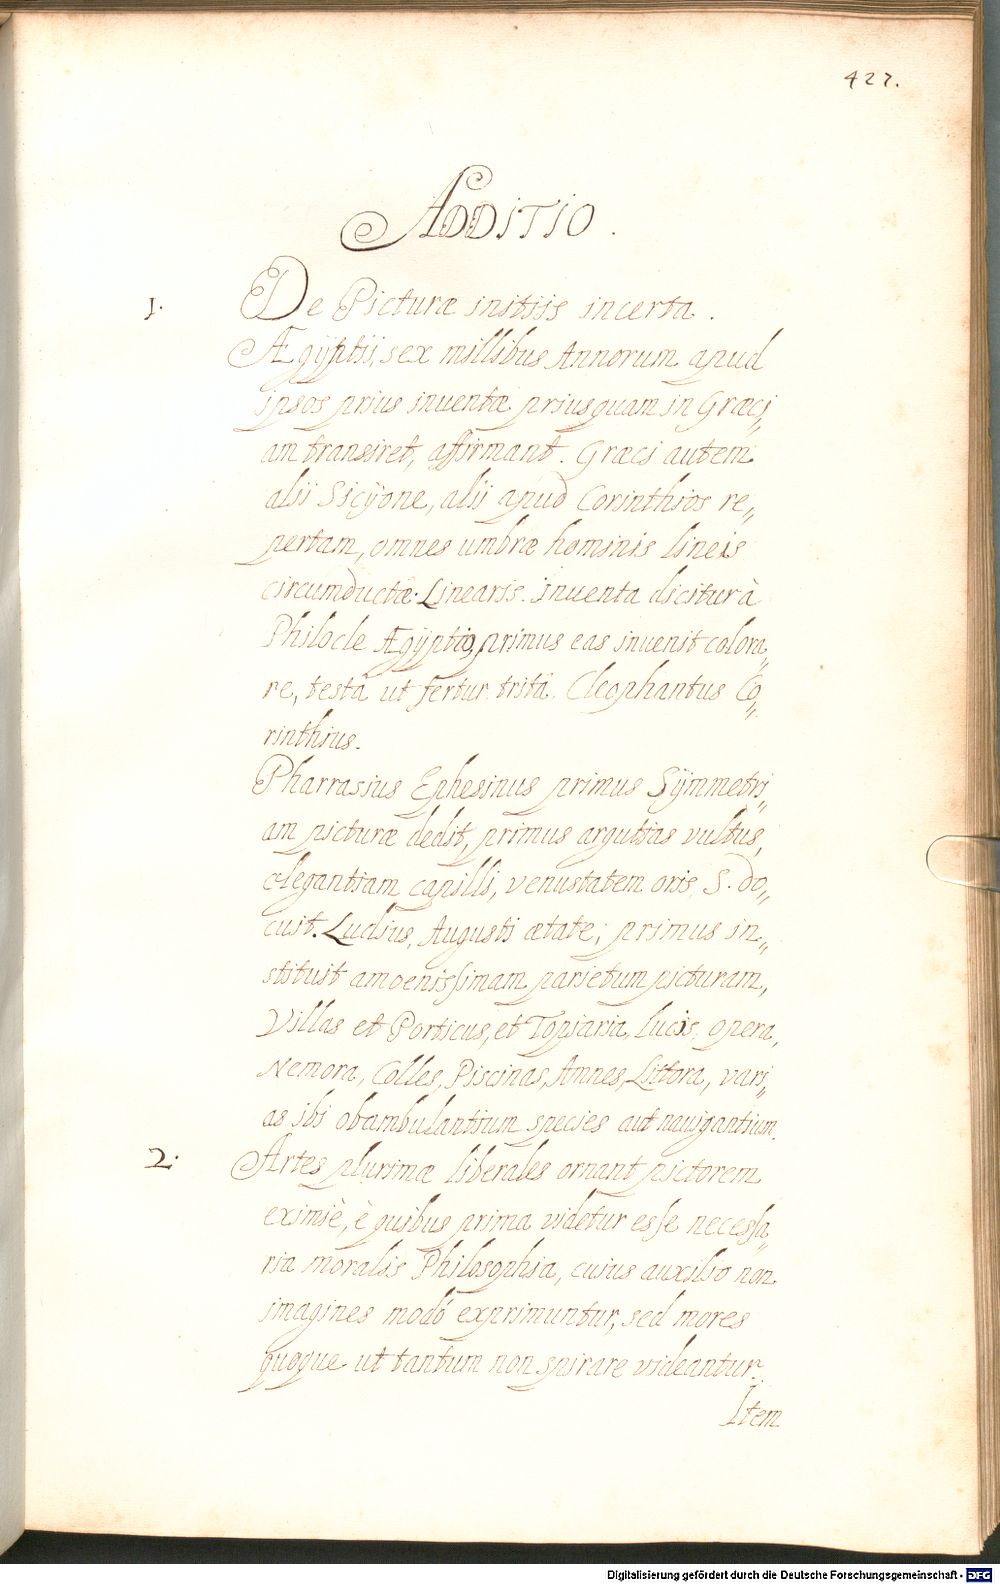 427.
ADDITIO.
1. De Picturæ initiis incerta.
Ægÿptii, sex millibus Annorum apud
ipsos prius inventæ priusquam in Græci„
am transiret, affirmant. Græci autem
alii Sicÿone, alii apud Corinthios re„
pertam, omnes umbræ hominis lineis
circumductæ. Linearis inuenta dicitur à
Philocle Ægÿptio, primus eas inuenit colora„
re, testâ ut fertur tritâ. Cleophantus Co„
rinthius.
Pharrasius Ephesinus primus Sÿmmetri„
am picturæ dedit, primus argutias vultus,
elegantiam capilli, venustatem oris, S. do„
cuit. Ludius, Augusti ætate; primus in„
stituit amoenissimam parietum picturam,
Villas et Porticus, et Topiaria, lucis, opera,
Nemora, Colles, Piscinas, Amnes, Littora, vari„
as ibi obambulantium species aut nauigantium.
2. Artes plurimæ liberales ornant pictorem
eximiè, è quibus prima videtur esse necessa„
ria moralis Philosophia, cuius auxilio non
imagines modó exprimuntur, sed mores
quoque ut tantum non spirare videantur.
Item
Digitalisierung gefördert durch die Deutsche Forschungsgemeinschaft - DFG